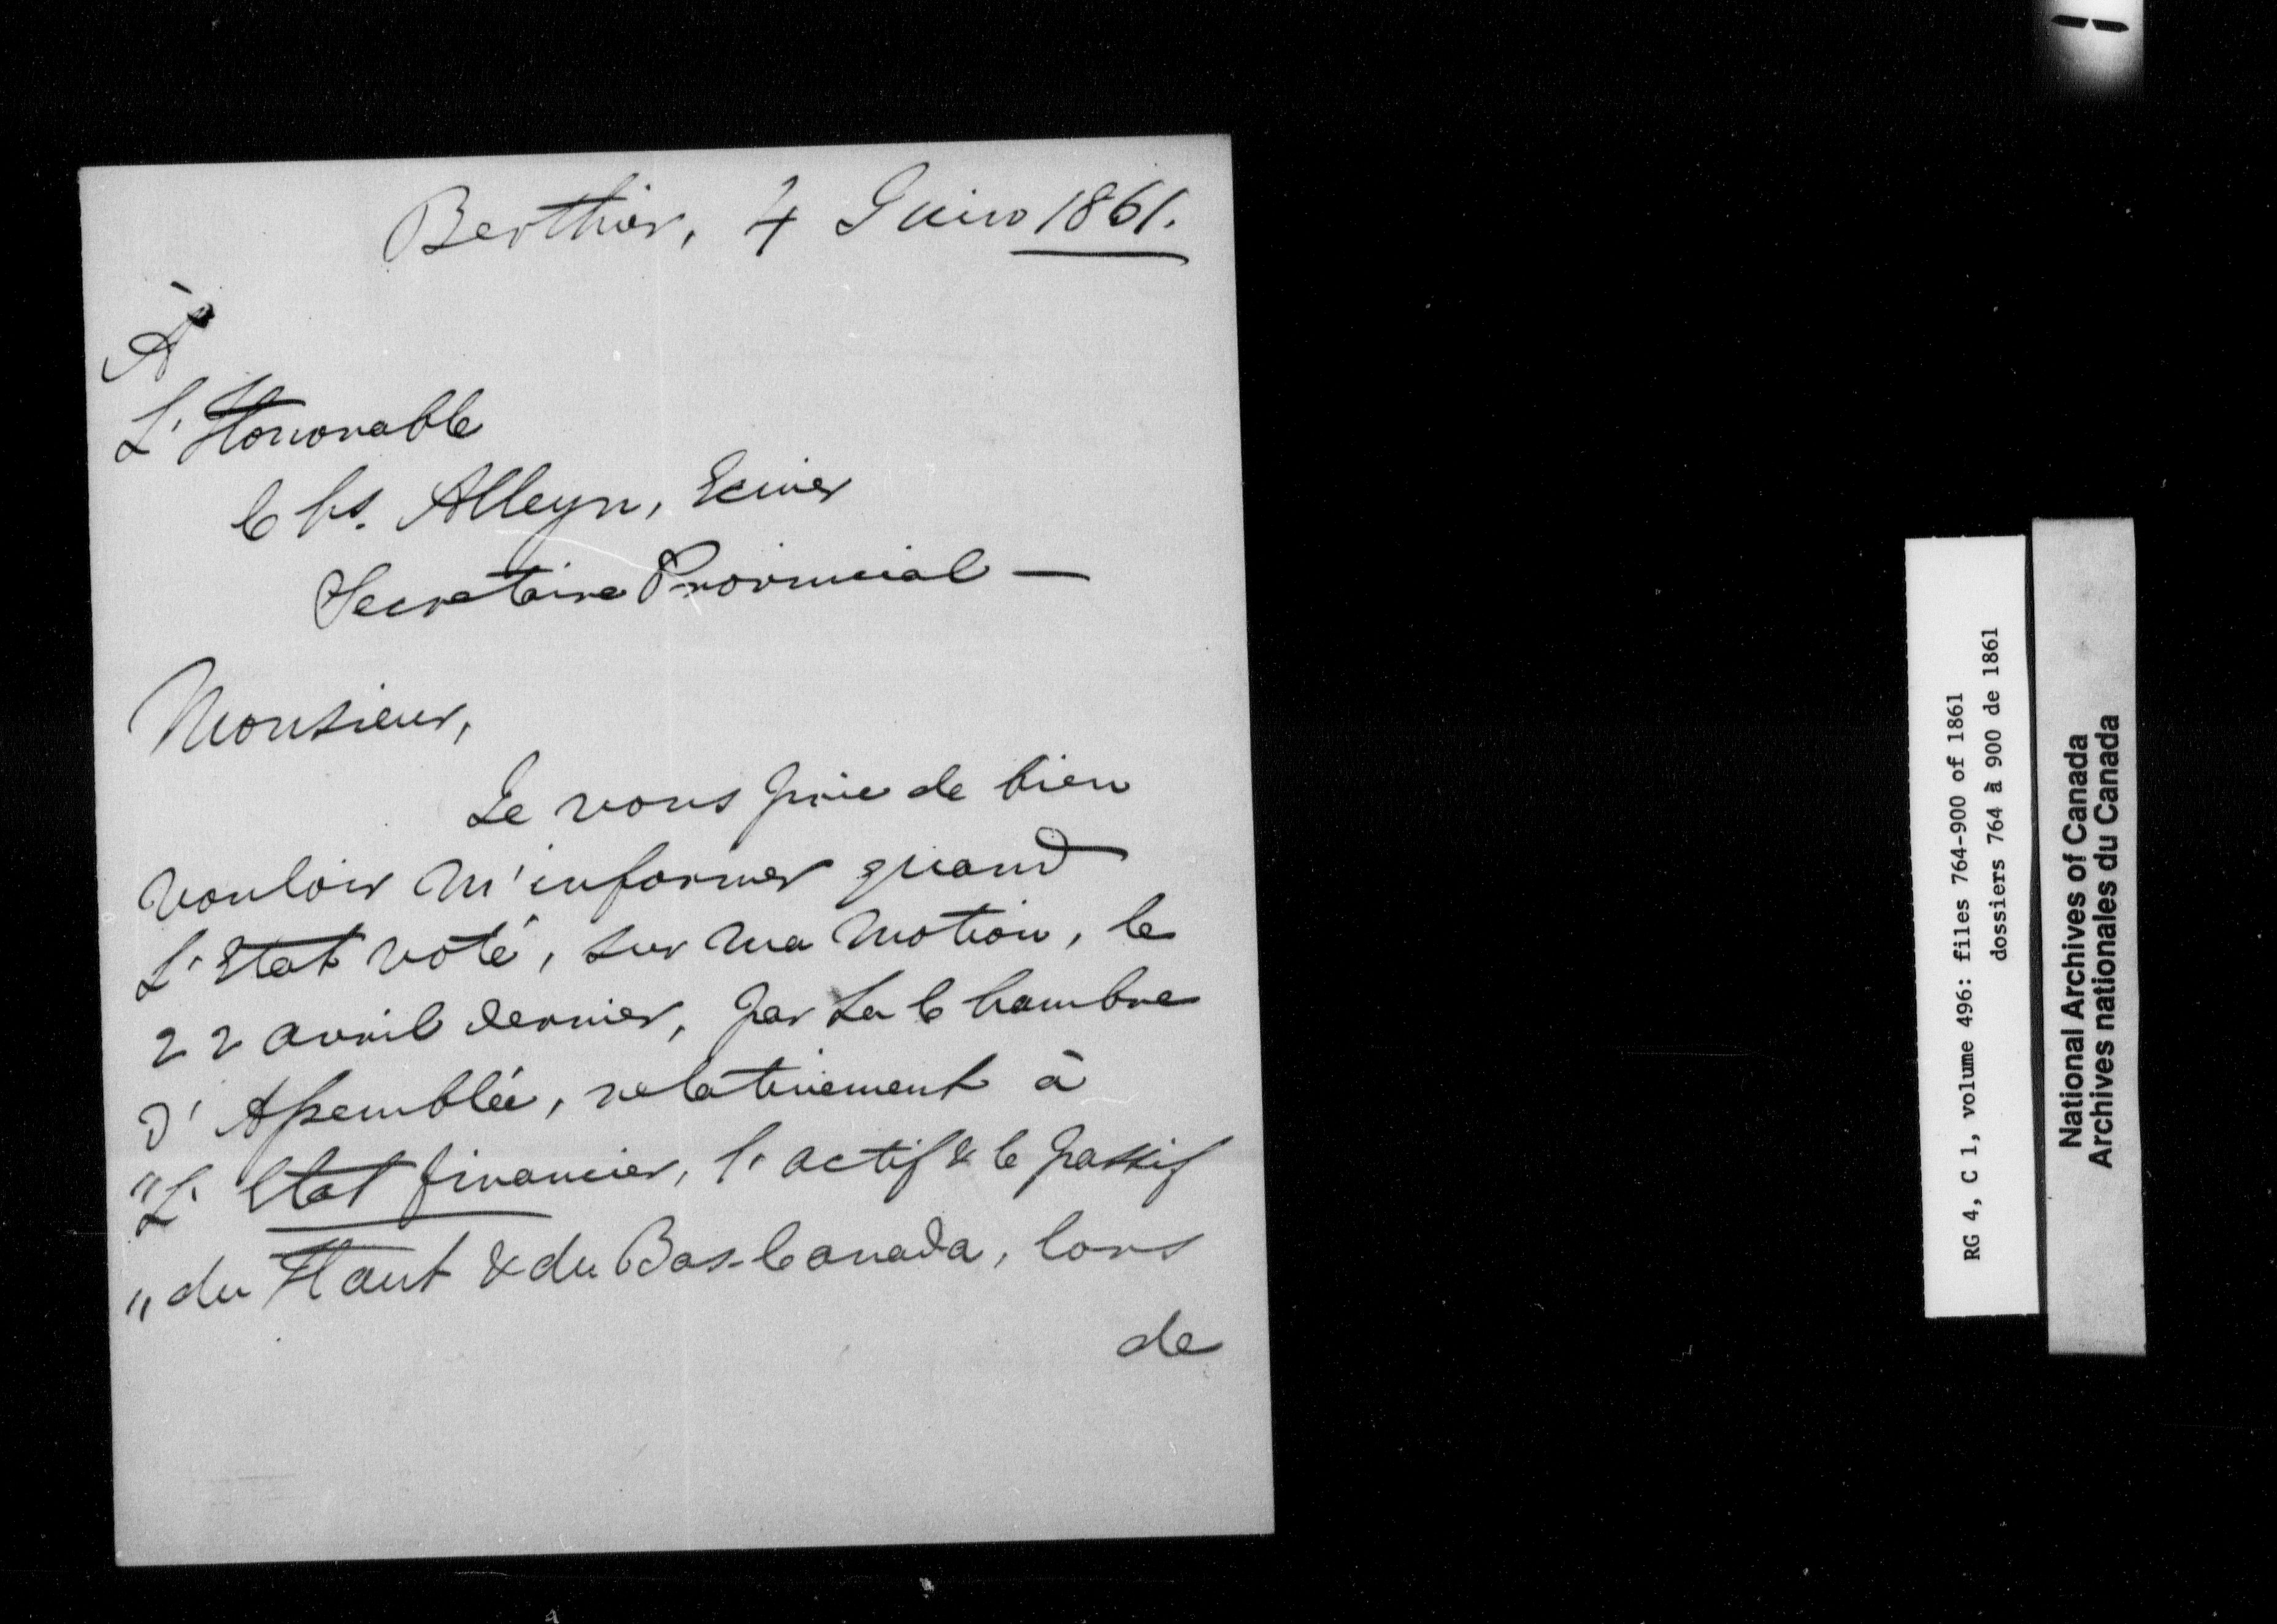 Berthier, 4 Juin 1861.
À
L'Honorable
Chs. Alleyn, Ecuier
Secretaire Provincial —
Monsieur,
Je vous prie de bien
vouloir m'informer quand
L'Etat voté, sur ma motion, le
22 avril dernier, par La Chambre
d'Assemblée, relativement à
"L'Etat financier, l'actif & le passif
" du Haut & du Bas-Canada, lors
de
RG 4, C 1, volume 496: files 764-900 of 1861
dossiers 764 à 900 de 1861
National Archives of Canada
Archives nationales du Canada